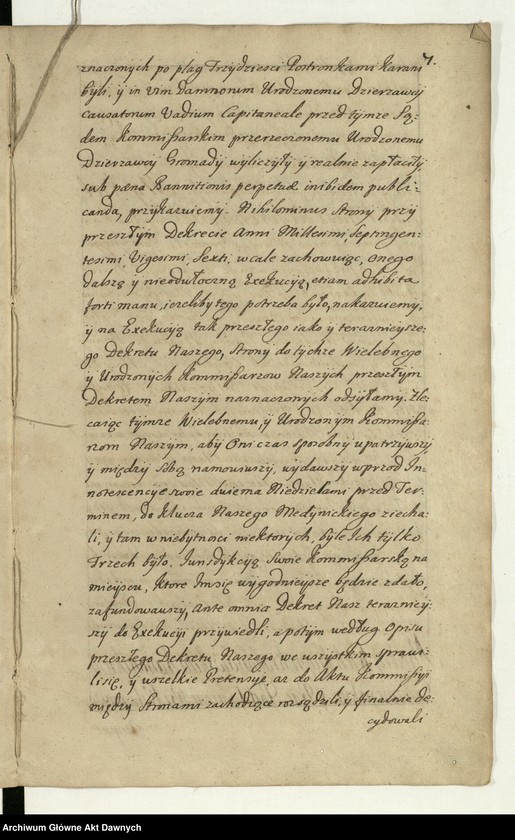 7.
znaczonych po plag Trzydziesci Postronkami karani
byli, y in vim Damnorum Urodzonemu Dzierzawcy
causatorum Vadium Capitaneale przed tymze Są-
dem Kommissarskim przerzeczonemu Urodzonemu
Dzierzawcy Gromady wyliczyły y realnie zapłaciły,
sub pæna Bannitionis perpetuæ inibidem publi-
canda, przykazuiemy. Nihilominus Strony przy
przeszłym Dekrecie Anni Millesimi, Septingen-
tesimi, Vigesimi, Sexti, wcale zachowuiąc, onego
dalszą y nieodwłoczną Exekucyią, etiam adhibita
forti manu, ieżeliby tego potrzeba było, nakazuiemy,
y na Exekucyią tak przeszłego iako y teraznieysze-
go Dekretu Naszego, Strony do tychze Wielebnego
y Urodzonych Kommissarzow Naszych przeszłym
Dekretem Naszym naznaczonych odsyłamy. Zle-
caiąc tymze Wielebnemu, y Urodzonym Kommissa-
rzom Naszym, aby Oni czas sposobny upatrzywszy,
y między sobą namowiwszy, wydawszy wprzod In-
notescencye swoie dwiema Niedzielami przed Ter-
minem, do Klucza Naszego Medynickiego ziecha-
li, y tam w niebytnosci niektorych, byle Ich tylko
Trzech było, Jurysdykcyią swoię Kommissarską na
mieyscu, ktore Im się wygodnieysze będzie zdało,
zafundowawszy, Ante omnia Dekret Nasz terazniey-
szy do Exekucyi przywiedli, a potym według Opisu
przeszłego Dekretu Naszego we wszystkim sprawi-
li się, y wszelkie Pretensye, az do Aktu Kommissyi
między Stronami zachodzące rozsądzili, y finalnie de-
cydowali
Archiwum Główne Akt Dawnych